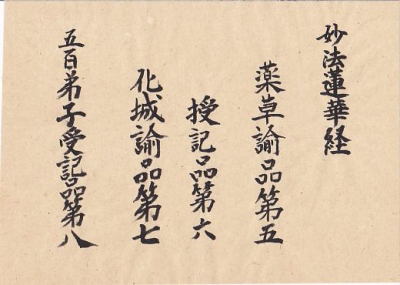 妙法蓮華経
薬草諭品第五
授記品第六
化城諭品第七
五百弟子受記品第八